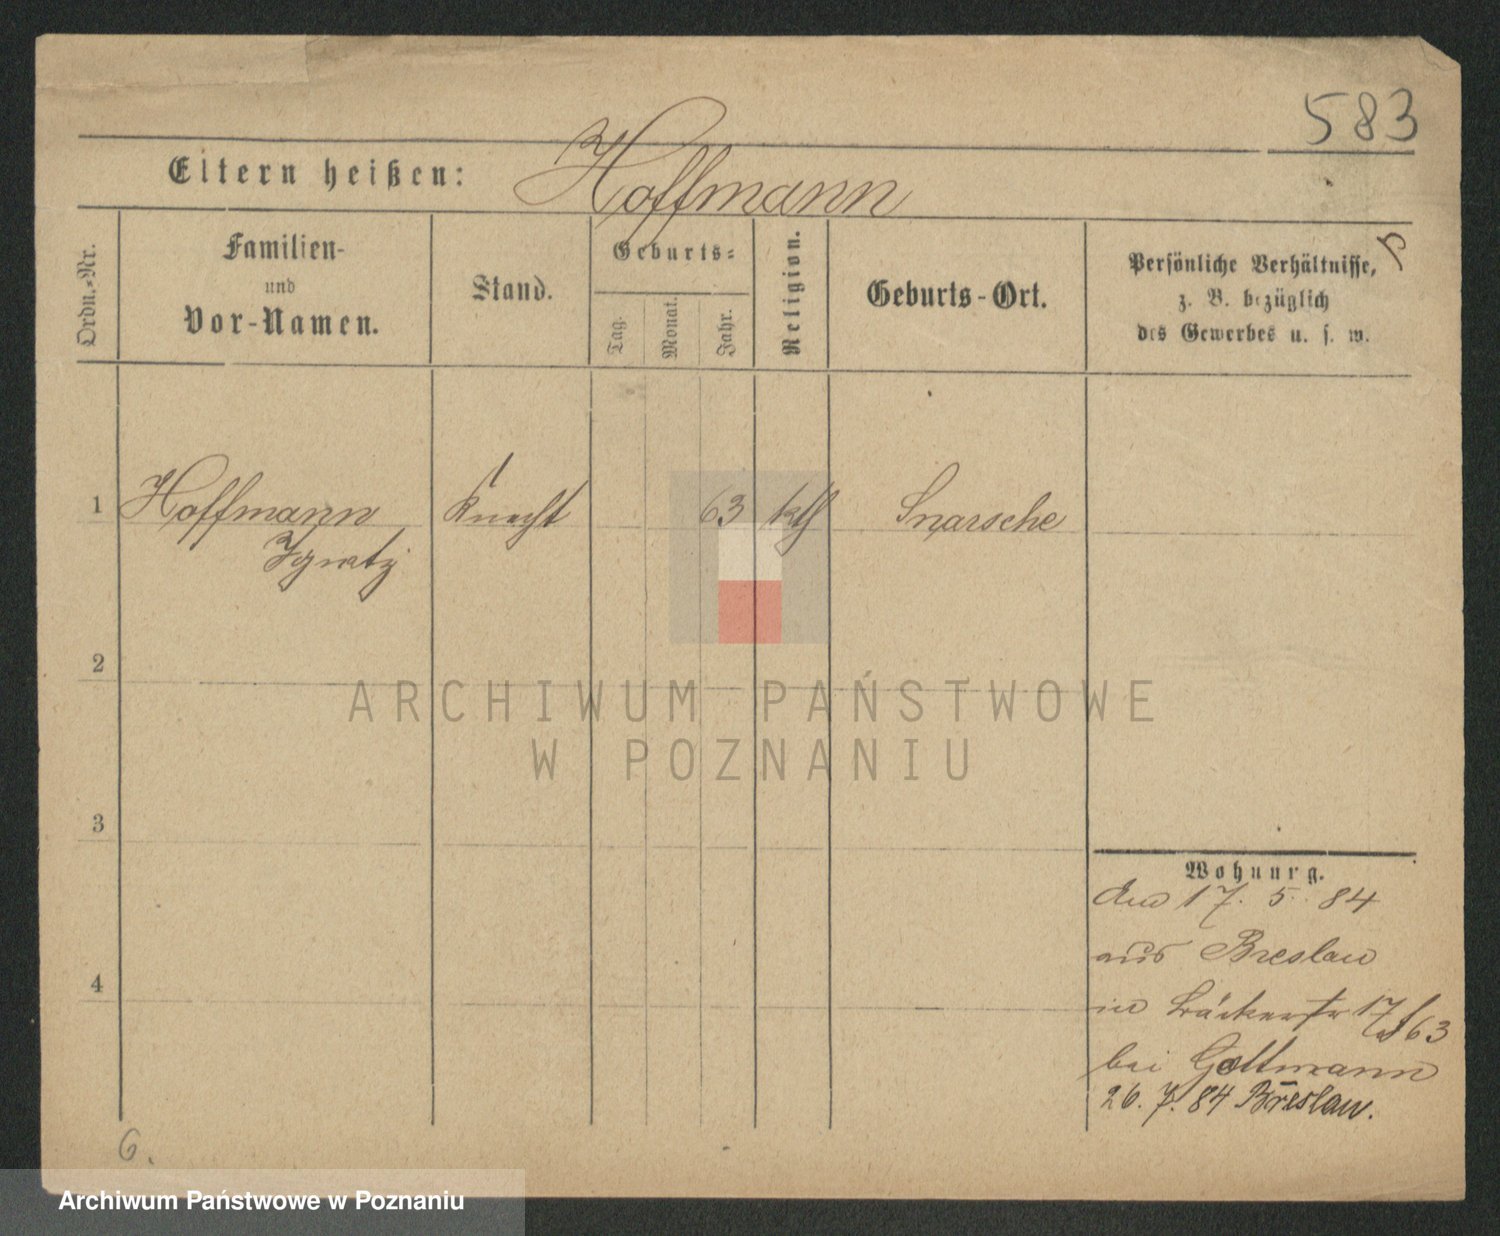 583
Eltern heißen: Hoffmann
Ordn.-Nr.
Familien-
und
Vor-Namen.
Stand.
Geburts-
Tag.
Monat.
Jahr.
Religion.
Geburts-Ort.
Persönliche Verhältnisse,
z. B. bezüglich
des Gewerbes u. s. w.
1 Hoffmann Knecht 63 kth Snarsche
Ignatz
2
ARCHIWUM PAŃSTWOWE
W POZNANIU
3
Wohnung.
den 17. 5. 84
aus Breslau
4
in Bäckerstr 17
63
bei Gottmann
26. 7. 84 Breslau.
6.
Archiwum Państwowe w Poznaniu